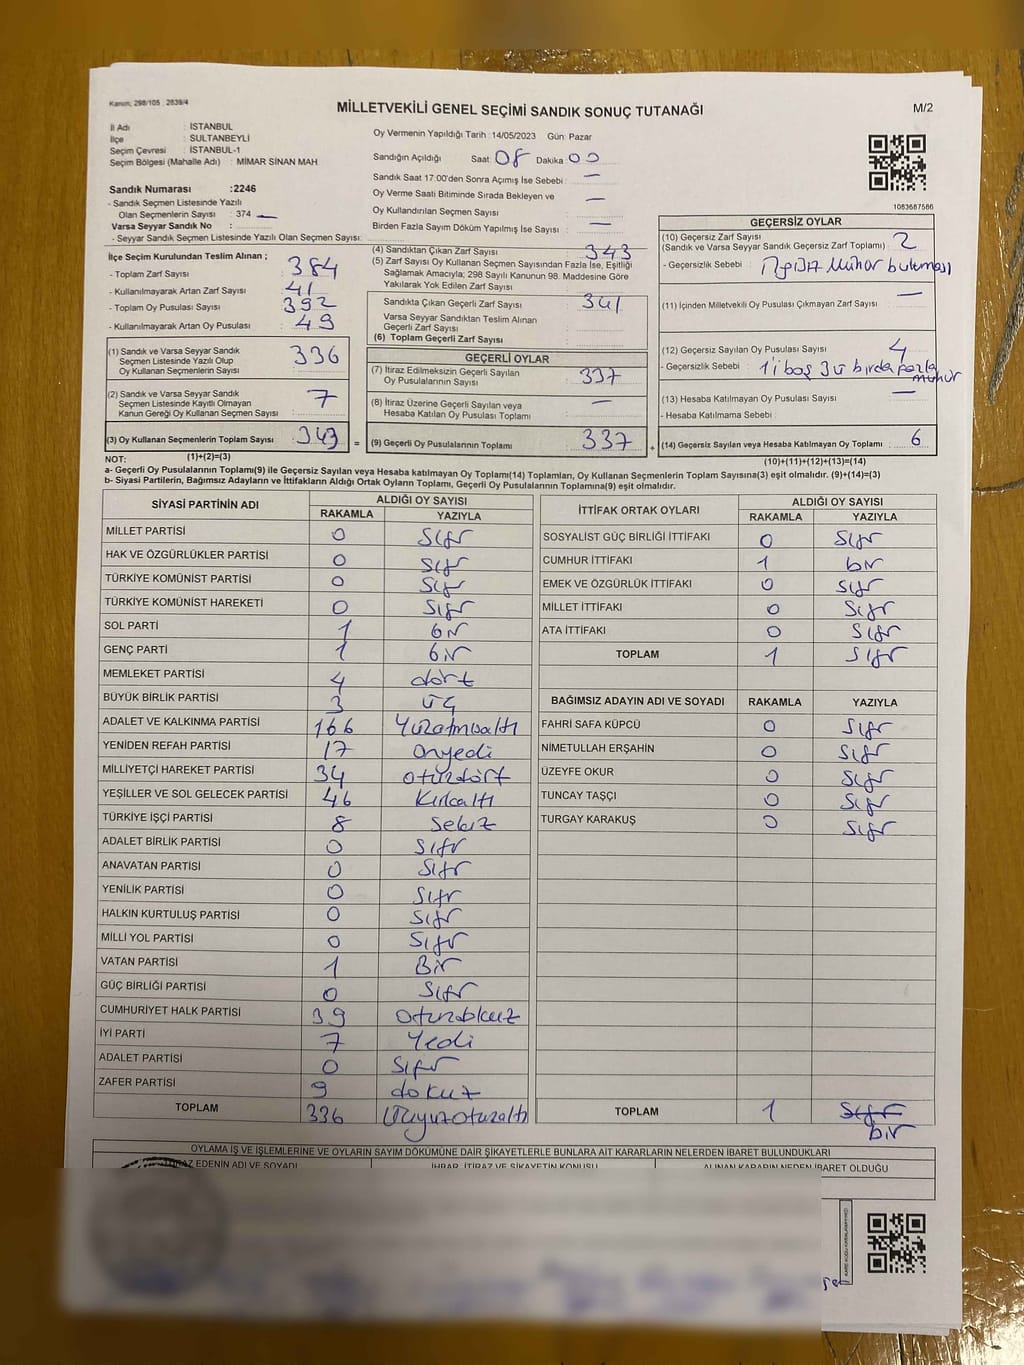 Kanun; 298/105 ; 2839/4
MİLLETVEKİLİ GENEL SEÇİMİ SANDIK SONUÇ TUTANAĞI
M/2
İl Adı : İSTANBUL
İlçe : SULTANBEYLİ
Seçim Çevresi : İSTANBUL-1
Seçim Bölgesi (Mahalle Adı) : MİMAR SİNAN MAH.
Sandık Numarası :2246
- Sandık Seçmen Listesinde Yazılı
Olan Seçmenlerin Sayısı : 374 —
Varsa Seyyar Sandık No :
- Seyyar Sandık Seçmen Listesinde Yazılı Olan Seçmen Sayısı:
Oy Vermenin Yapıldığı Tarih :14/05/2023 Gün: Pazar
Sandığın Açıldığı Saat 08 Dakika 00
Sandık Saat 17:00'den Sonra Açımış İse Sebebi : —
Oy Verme Saati Bitiminde Sırada Bekleyen ve
Oy Kullandırılan Seçmen Sayısı : —
Birden Fazla Sayım Döküm Yapılmış İse Sayısı : —
1083687586
İlçe Seçim Kurulundan Teslim Alınan ;
- Toplam Zarf Sayısı : 384
- Kullanılmayarak Artan Zarf Sayısı : 41
- Toplam Oy Pusulası Sayısı : 392
- Kullanılmayarak Artan Oy Pusulası : 49
(1) Sandık ve Varsa Seyyar Sandık
Seçmen Listesinde Yazılı Olup
Oy Kullanan Seçmenlerin Sayısı : 336
(2) Sandık ve Varsa Seyyar Sandık
Seçmen Listesinde Kayıtlı Olmayan
Kanun Gereği Oy Kullanan Seçmen Sayısı : 7
(3) Oy Kullanan Seçmenlerin Toplam Sayısı : 343 =
(1)+(2)=(3)
(4) Sandıktan Çıkan Zarf Sayısı : 343
(5) Zarf Sayısı Oy Kullanan Seçmen Sayısından Fazla İse, Eşitliği
Sağlamak Amacıyla; 298 Sayılı Kanunun 98. Maddesine Göre
Yakılarak Yok Edilen Zarf Sayısı :
Sandıkta Çıkan Geçerli Zarf Sayısı : 341
Varsa Seyyar Sandıktan Teslim Alınan
Geçerli Zarf Sayısı :
(6) Toplam Geçerli Zarf Sayısı :
GEÇERLİ OYLAR
(7) İtiraz Edilmeksizin Geçerli Sayılan
Oy Pusulalarının Sayısı : 337
(8) İtiraz Üzerine Geçerli Sayılan veya
Hesaba Katılan Oy Pusulası Toplamı : —
(9) Geçerli Oy Pusulalarının Toplamı : 337 +
GEÇERSİZ OYLAR
(10) Geçersiz Zarf Sayısı
(Sandık ve Varsa Seyyar Sandık Geçersiz Zarf Toplamı) : 2
- Geçersizlik Sebebi :
(11) İçinden Milletvekili Oy Pusulası Çıkmayan Zarf Sayısı : —
(12) Geçersiz Sayılan Oy Pusulası Sayısı : 4
- Geçersizlik Sebebi : 1'i boş 3ü birda fazla
mühür
(13) Hesaba Katılmayan Oy Pusulası Sayısı : —
- Hesaba Katılmama Sebebi :
(14) Geçersiz Sayılan veya Hesaba Katılmayan Oy Toplamı : 6
(10)+(11)+(12)+(13)=(14)
NOT:
a- Geçerli Oy Pusulalarının Toplamı(9) ile Geçersiz Sayılan veya Hesaba katılmayan Oy Toplamı(14) Toplamları, Oy Kullanan Seçmenlerin Toplam Sayısına(3) eşit olmalıdır. (9)+(14)=(3)
b- Siyasi Partilerin, Bağımsız Adayların ve İttifakların Aldığı Ortak Oyların Toplamı, Geçerli Oy Pusulalarının Toplamına(9) eşit olmalıdır.
SİYASİ PARTİNİN ADI ALDIĞI OY SAYISI
RAKAMLA YAZIYLA
MİLLET PARTİSİ 0 Sıfır
HAK VE ÖZGÜRLÜKLER PARTİSİ 0 Sıfır
TÜRKİYE KOMÜNİST PARTİSİ 0 Sıfır
TÜRKİYE KOMÜNİST HAREKETİ 0 Sıfır
SOL PARTİ 1 bir
GENÇ PARTİ 1 bir
MEMLEKET PARTİSİ 4 dört
BÜYÜK BİRLİK PARTİSİ 3 üç
ADALET VE KALKINMA PARTİSİ 166 Yüzatmışaltı
YENİDEN REFAH PARTİSİ 17 onyedi
MİLLİYETÇİ HAREKET PARTİSİ 34 otuzdört
YEŞİLLER VE SOL GELECEK PARTİSİ 46 Kırkaltı
TÜRKİYE İŞÇİ PARTİSİ 8 Sekiz
ADALET BİRLİK PARTİSİ 0 Sıfır
ANAVATAN PARTİSİ 0 Sıfır
YENİLİK PARTİSİ 0 Sıfır
HALKIN KURTULUŞ PARTİSİ 0 Sıfır
MİLLİ YOL PARTİSİ 0 Sıfır
VATAN PARTİSİ 1 Bir
GÜÇ BİRLİĞİ PARTİSİ 0 Sıfır
CUMHURİYET HALK PARTİSİ 39 Otuzdokuz
İYİ PARTİ 7 Yedi
ADALET PARTİSİ 0 Sıfır
ZAFER PARTİSİ 9 dokuz
TOPLAM 336 Üçyüzotuzaltı
İTTİFAK ORTAK OYLARI ALDIĞI OY SAYISI
RAKAMLA YAZIYLA
SOSYALİST GÜÇ BİRLİĞİ İTTİFAKI 0 Sıfır
CUMHUR İTTİFAKI 1 bir
EMEK VE ÖZGÜRLÜK İTTİFAKI 0 Sıfır
MİLLET İTTİFAKI 0 Sıfır
ATA İTTİFAKI 0 Sıfır
TOPLAM 1 Sıfır
BAĞIMSIZ ADAYIN ADI VE SOYADI RAKAMLA YAZIYLA
FAHRİ SAFA KÜPCÜ 0 Sıfır
NİMETULLAH ERŞAHİN 0 Sıfır
ÜZEYFE OKUR 0 Sıfır
TUNCAY TAŞÇI 0 Sıfır
TURGAY KARAKUŞ 0 Sıfır
TOPLAM 1 Sıfır
bir
OYLAMA İŞ VE İŞLEMLERİNE VE OYLARIN SAYIM DÖKÜMÜNE DAİR ŞİKAYETLERLE BUNLARA AİT KARARLARIN NELERDEN İBARET BULUNDUKLARI
EDENİN ADI VE SOYADI İHBAR, İTİRAZ VE ŞİKAYETİN KONUSU ALINAN KARARIN NEDEN İBARET OLDUĞU